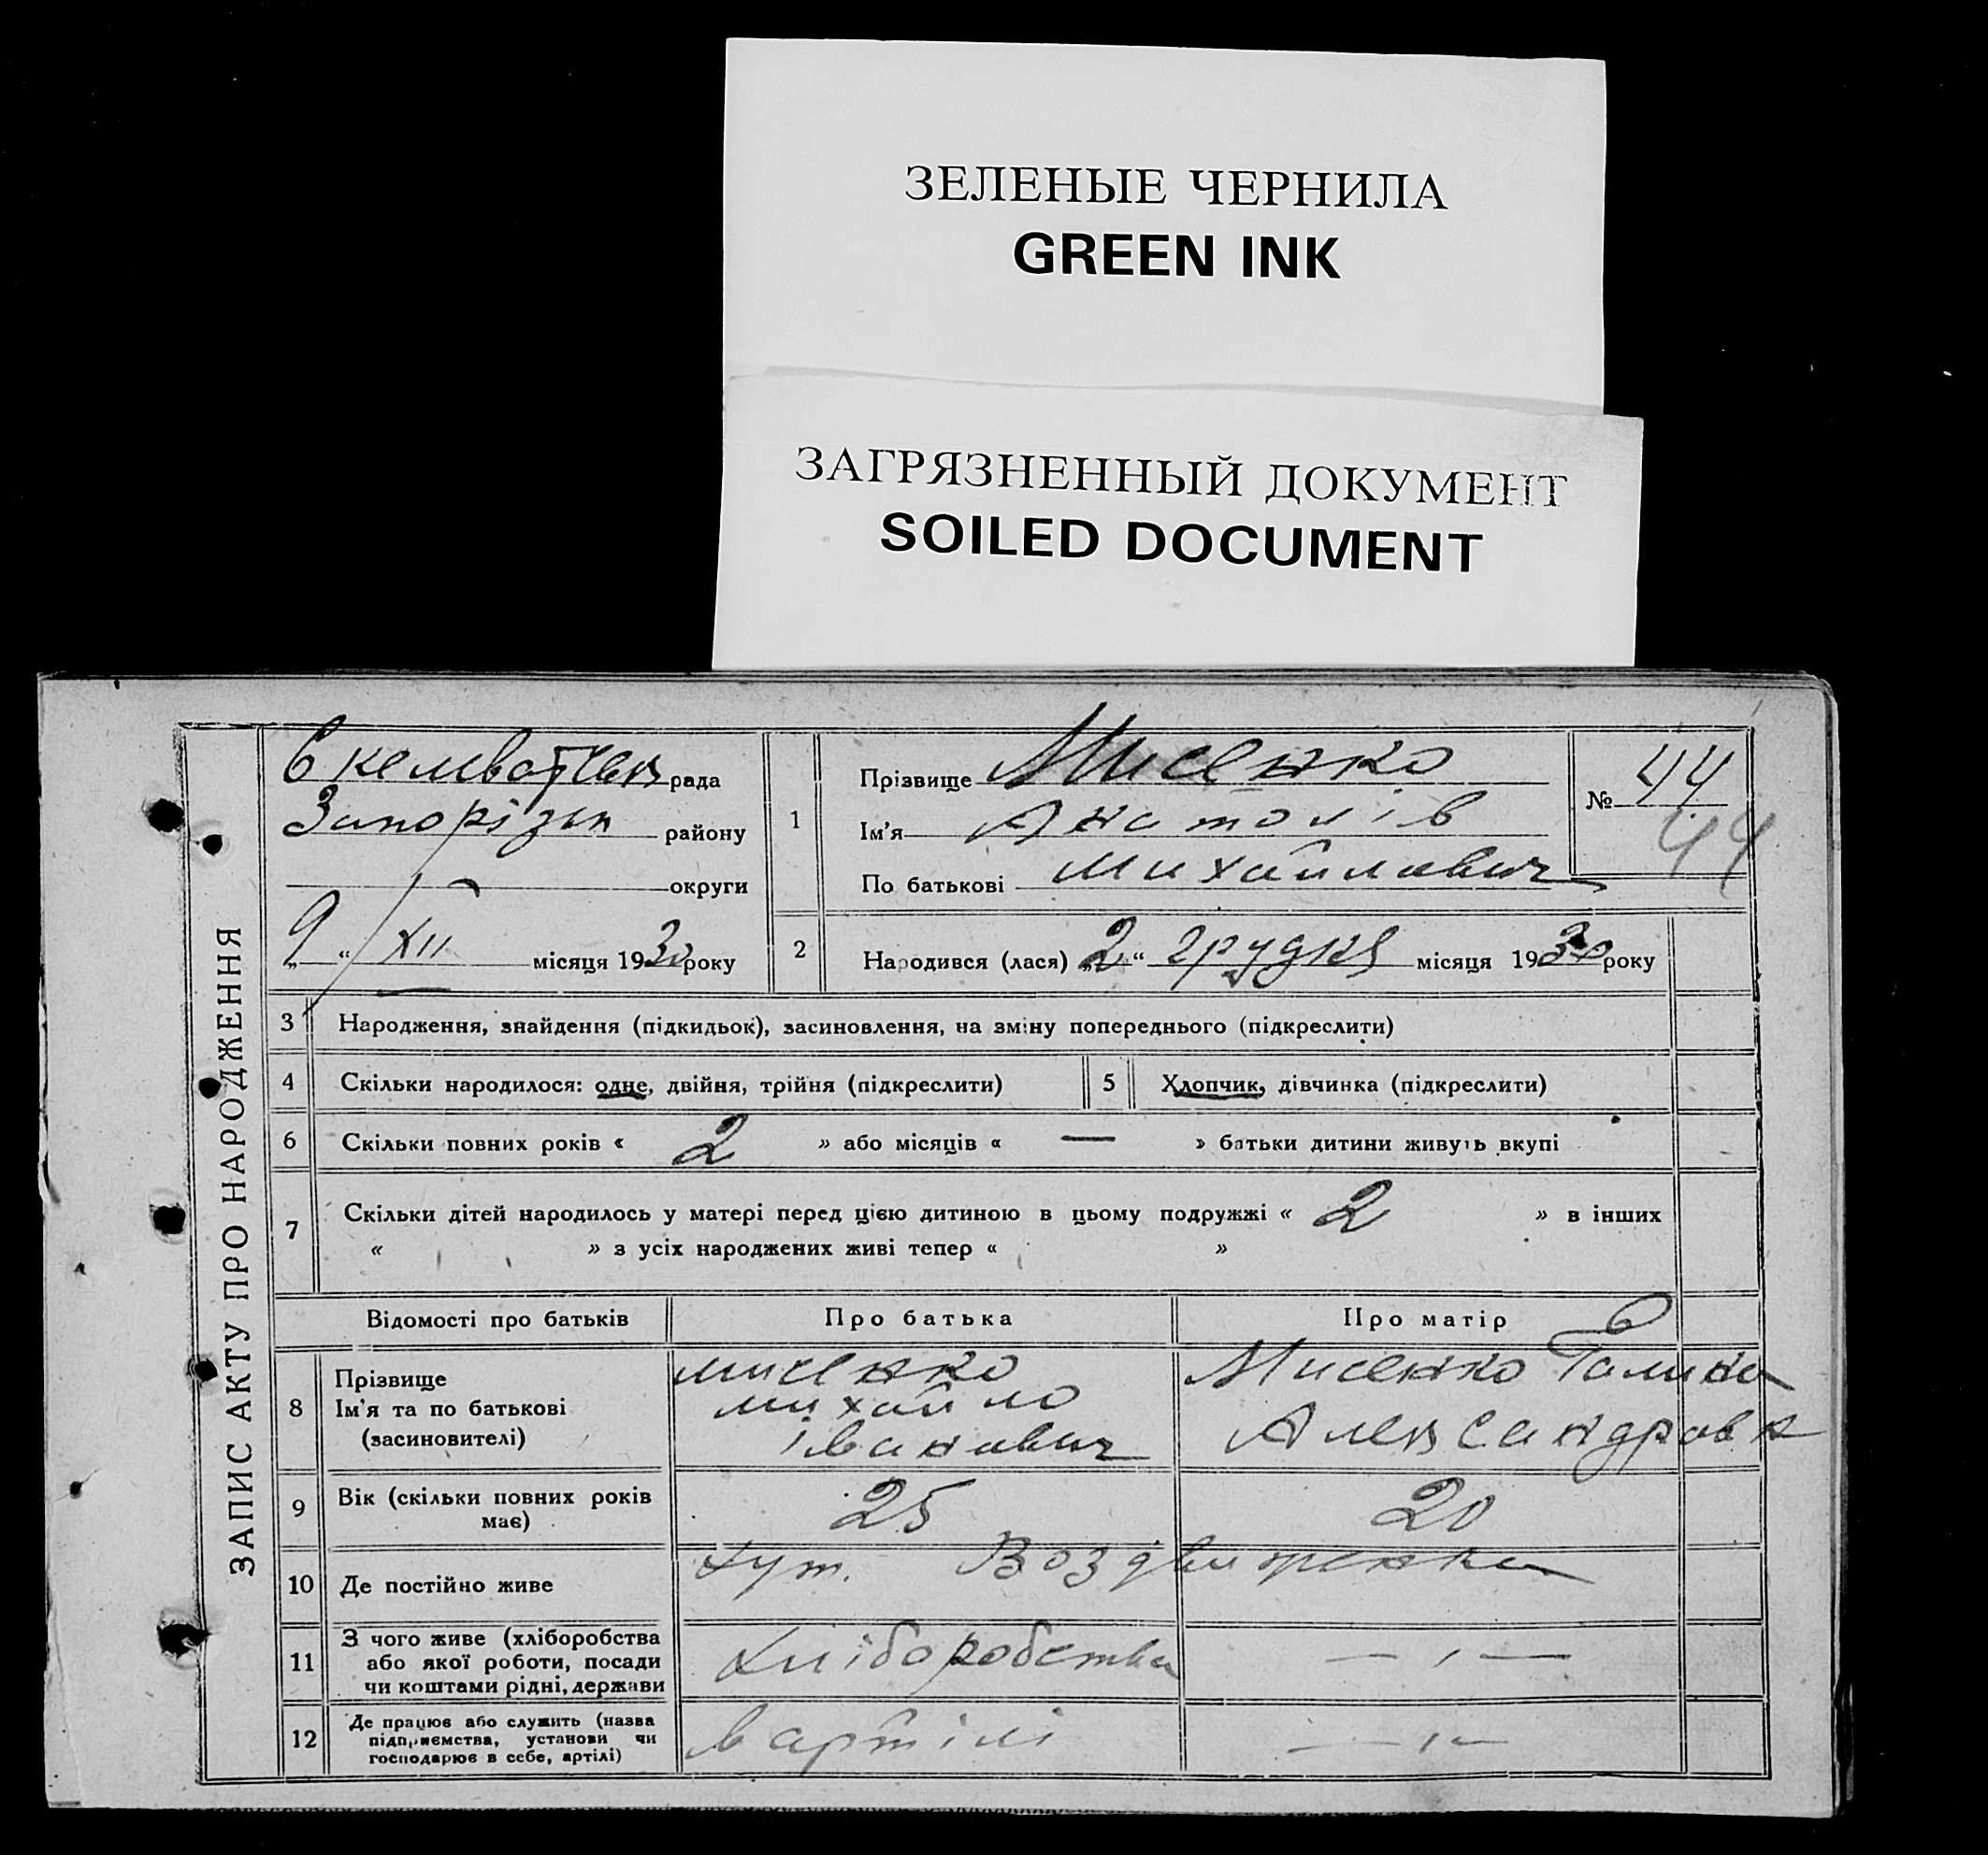 ЗЕЛЕНЫЕ ЧЕРНИЛА
GREEN INK
ЗАГРЯЗНЕННЫЙ ДОКУМЕНТ
SOILED DOCUMENT
ЗАПИС АКТУ ПРО НАРОДЖЕННЯ
рада
Запорізьк району
округи
„9“ XII місяця 1930 року
1
Прізвище Мисенко
Ім'я Анатолів
По батькові Михайлович
№ 44
44
2
Народився (лася) „2“ грудня місяця 1930 року
3 Народження, знайдення (підкидьок), засиновлення, на зміну попереднього (підкреслити)
4 Скільки народилося: одне, двійня, трійня (підкреслити) 5 Хлопчик, дівчинка (підкреслити)
6 Скільки повних років « 2 » або місяців « — » батьки дитини живуть вкупі
7 Скільки дітей народилось у матері перед цією дитиною в цьому подружжі « 2 » в інших
« » з усіх народжених живі тепер « »
Відомості про батьків Про батька Про матір
8 Прізвище
Ім'я та по батькові
(засиновителі)
Мисенко
Михайло
Іванович
Мисенко Галина
Александровк
9 Вік (скільки повних років
має)
25 20
10 Де постійно живе хут. Воздвиженка
11 З чого живе (хліборобства
або якої роботи, посади
чи коштами рідні, держави
Хліборобства — ı —
12 Де працює або служить (назва
підприємства, установи чи
господарює в себе, артілі)
в артілі — ı —